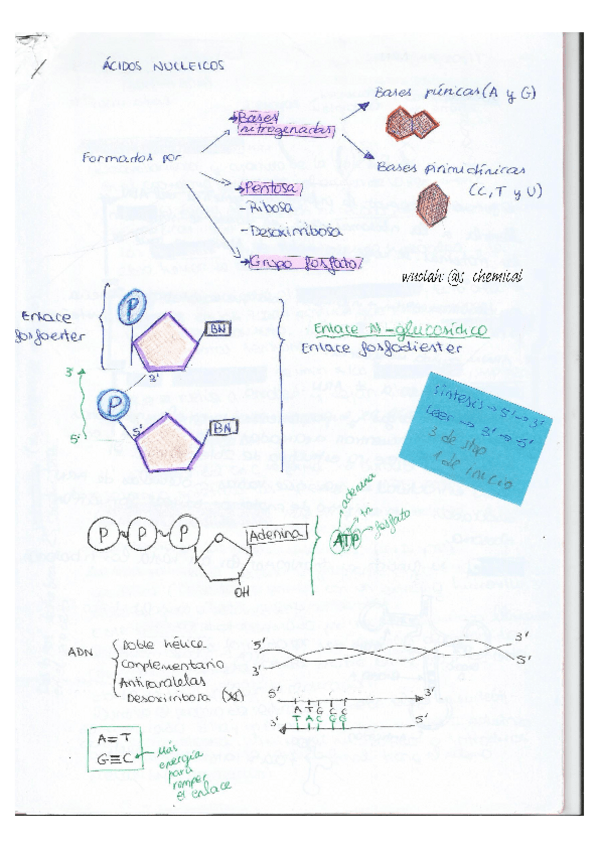 ÁCIDOS NUCLEICOS
Formados por
→Bases
nitrogenadas
Bases púricas (A y G)
Bases pirimidínicas
(C, T y U)
→Pentosa
-Ribosa
-Desoxirribosa
→Grupo fosfato
wuolah: @s_chemical
Enlace
fosfoester
P
BN
3'
P
5'
BN
3'
5'
Enlace N-glucosídico
Enlace fosfodiester
síntesis → 5' → 3'
leer → 3' → 5'
3 de stop
1 de inicio
P P P
Adenina
OH
ATP
adenina
tri
fosfato
ADN
Doble hélice
Complementario
Antiparalelas
Desoxirribosa
5' 3'
3' 5'
5' 3'
A T G C C
T A C G G
3' 5'
A=T
G≡C
Más
energía
para
romper
el enlace